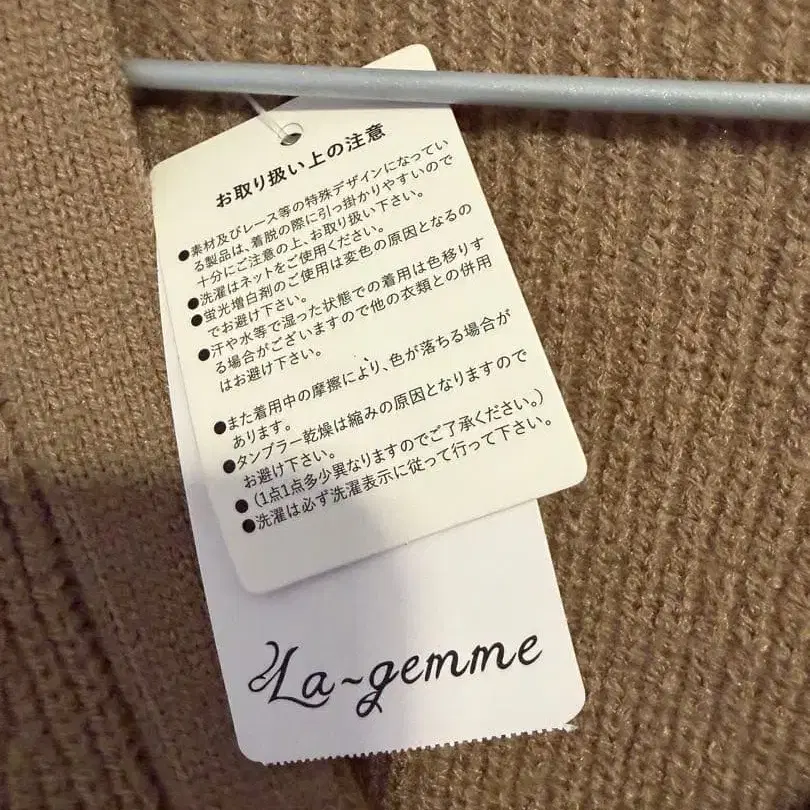 お取り扱い上の注意
●素材及びレース等の特殊デザインになってい
る製品は、着脱の際に引っ掛かりやすいので
十分にご注意の上、お取り扱い下さい。
●洗濯はネットをご使用ください。
●蛍光増白剤のご使用は変色の原因となるの
でお避け下さい。
●汗や水等で湿った状態での着用は色移りす
る場合がございますので他の衣類との併用
はお避け下さい。
●また着用中の摩擦により、色が落ちる場合が
あります。
●タンブラー乾燥は縮みの原因となりますので
お避け下さい。
●（1点1点多少異なりますのでご了承ください。）
●洗濯は必ず洗濯表示に従って行って下さい。
La~gemme